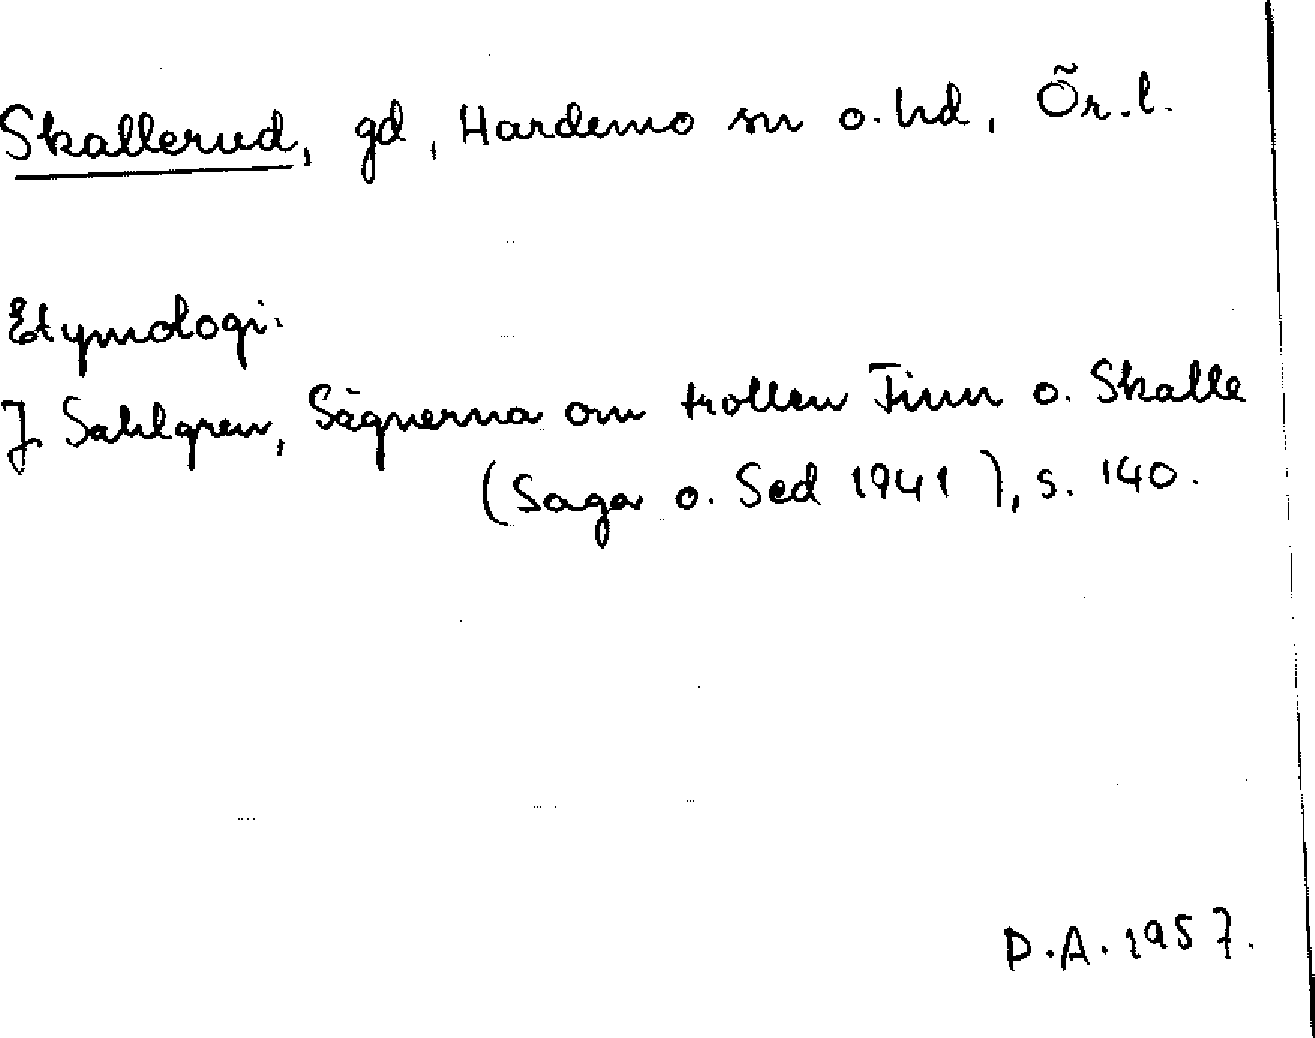 Skallerud, gd, Hardemo sn o. hd, Ör. l.
Etymologi:
J Sahlgren, Sägnerna om trollen Finn o. Skalle
(Saga o. Sed 1941), s. 140.
D.A. 1957.